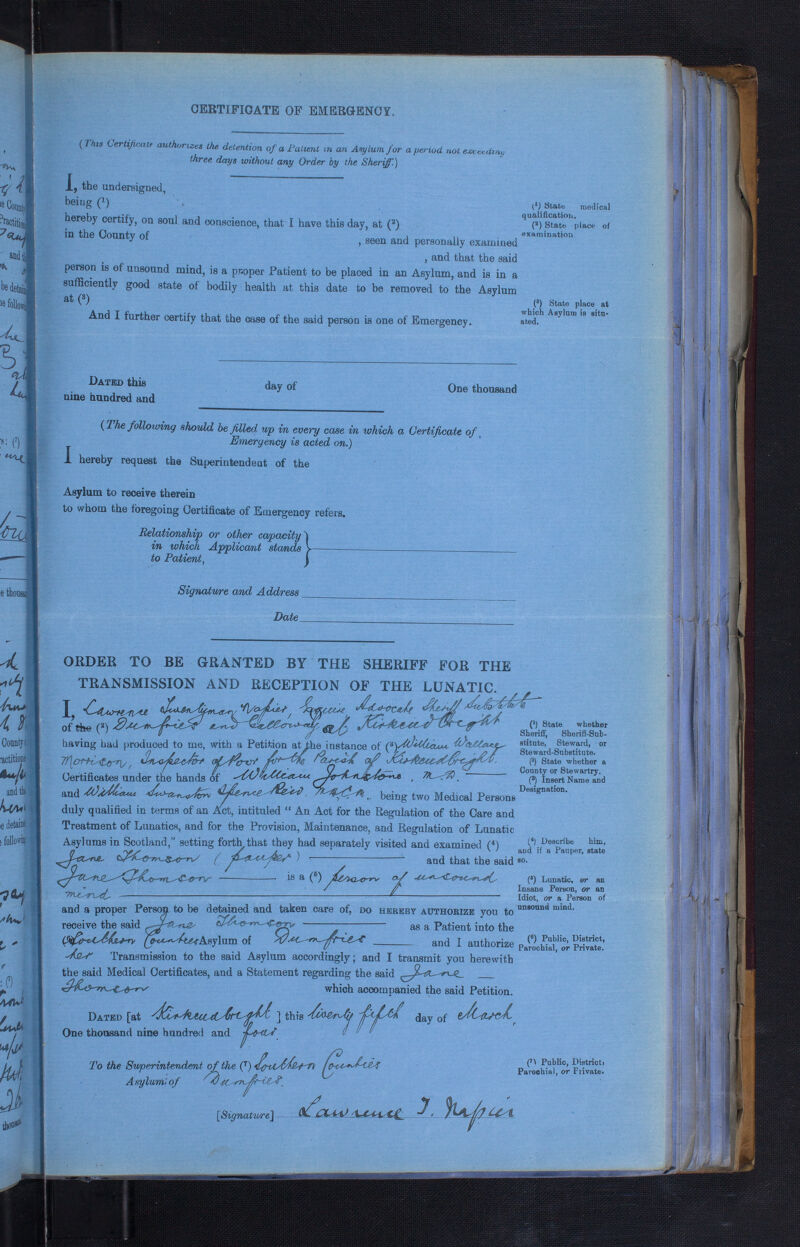 CERTIFICATE OF EMERGENCY.
(This Certificate authorizes the detention of a Patient in an Asylum for a period not exceeding
three days without any Order by the Sheriff.)
I, the undersigned,
being (¹)
hereby certify, on soul and conscience, that I have this day, at (²)
in the County of , seen and personally examined
, and that the said
person is of unsound mind, is a proper Patient to be placed in an Asylum, and is in a
sufficiently good state of bodily health at this date to be removed to the Asylum
at (³)
And I further certify that the case of the said person is one of Emergency.
(¹) State medical
qualification.
(²) State place of
examination
(³) State place at
which Asylum is situ-
ated.
DATED this day of One thousand
nine hundred and
(The following should be filled up in every case in which a Certificate of
Emergency is acted on.)
I hereby request the Superintendent of the
Asylum to receive therein
to whom the foregoing Certificate of Emergency refers.
Relationship or other capacity
in which Applicant stands
to Patient,
Signature and Address
Date
ORDER TO BE GRANTED BY THE SHERIFF FOR THE
TRANSMISSION AND RECEPTION OF THE LUNATIC.
I, Lawrence Twentyman Napier, Esquire, Advocate Sheriff Substitute
of the (²) Dumfries and Galloway at Kirkcudbright
having had produced to me, with a Petition at the instance of (³) William Wallace
Morrison, Inspector of Poor for the Parish of Kirkcudbright.
Certificates under the hands of William Johnstone, M.D.
and William Swanston Spence Reid, M.B.C.M., being two Medical Persons
duly qualified in terms of an Act, intituled "An Act for the Regulation of the Care and
Treatment of Lunatics, and for the Provision, Maintenance, and Regulation of Lunatic
Asylums in Scotland," setting forth that they had separately visited and examined (⁴)
Jane Thomson (pauper) and that the said
Jane Thomson is a (⁵) person of unsound
mind
and a proper Person to be detained and taken care of, DO HEREBY AUTHORIZE you to
receive the said Jane Thomson as a Patient into the
(⁶) Southern Counties Asylum of Dumfries and I authorize
her Transmission to the said Asylum accordingly; and I transmit you herewith
the said Medical Certificates, and a Statement regarding the said Jane
Thomson which accompanied the said Petition.
DATED [at Kirkcudbright] this twenty fifth day of March,
One thousand nine hundred and four.
To the Superintendent of the (⁷) Southern Counties
Asylum of Dumfries.
[Signature] Lawrence T. Napier
(¹) State whether
Sheriff, Sheriff-Sub-
stitute, Steward, or
Steward-Substitute.
(²) State whether a
County or Stewartry.
(³) Insert Name and
Designation.
(⁴) Describe him,
and if a Pauper, state
so.
(⁵) Lunatic, or an
Insane Person, or an
Idiot, or a Person of
unsound mind.
(⁶) Public, District,
Parochial, or Private.
(⁷) Public, District,
Parochial, or Private.